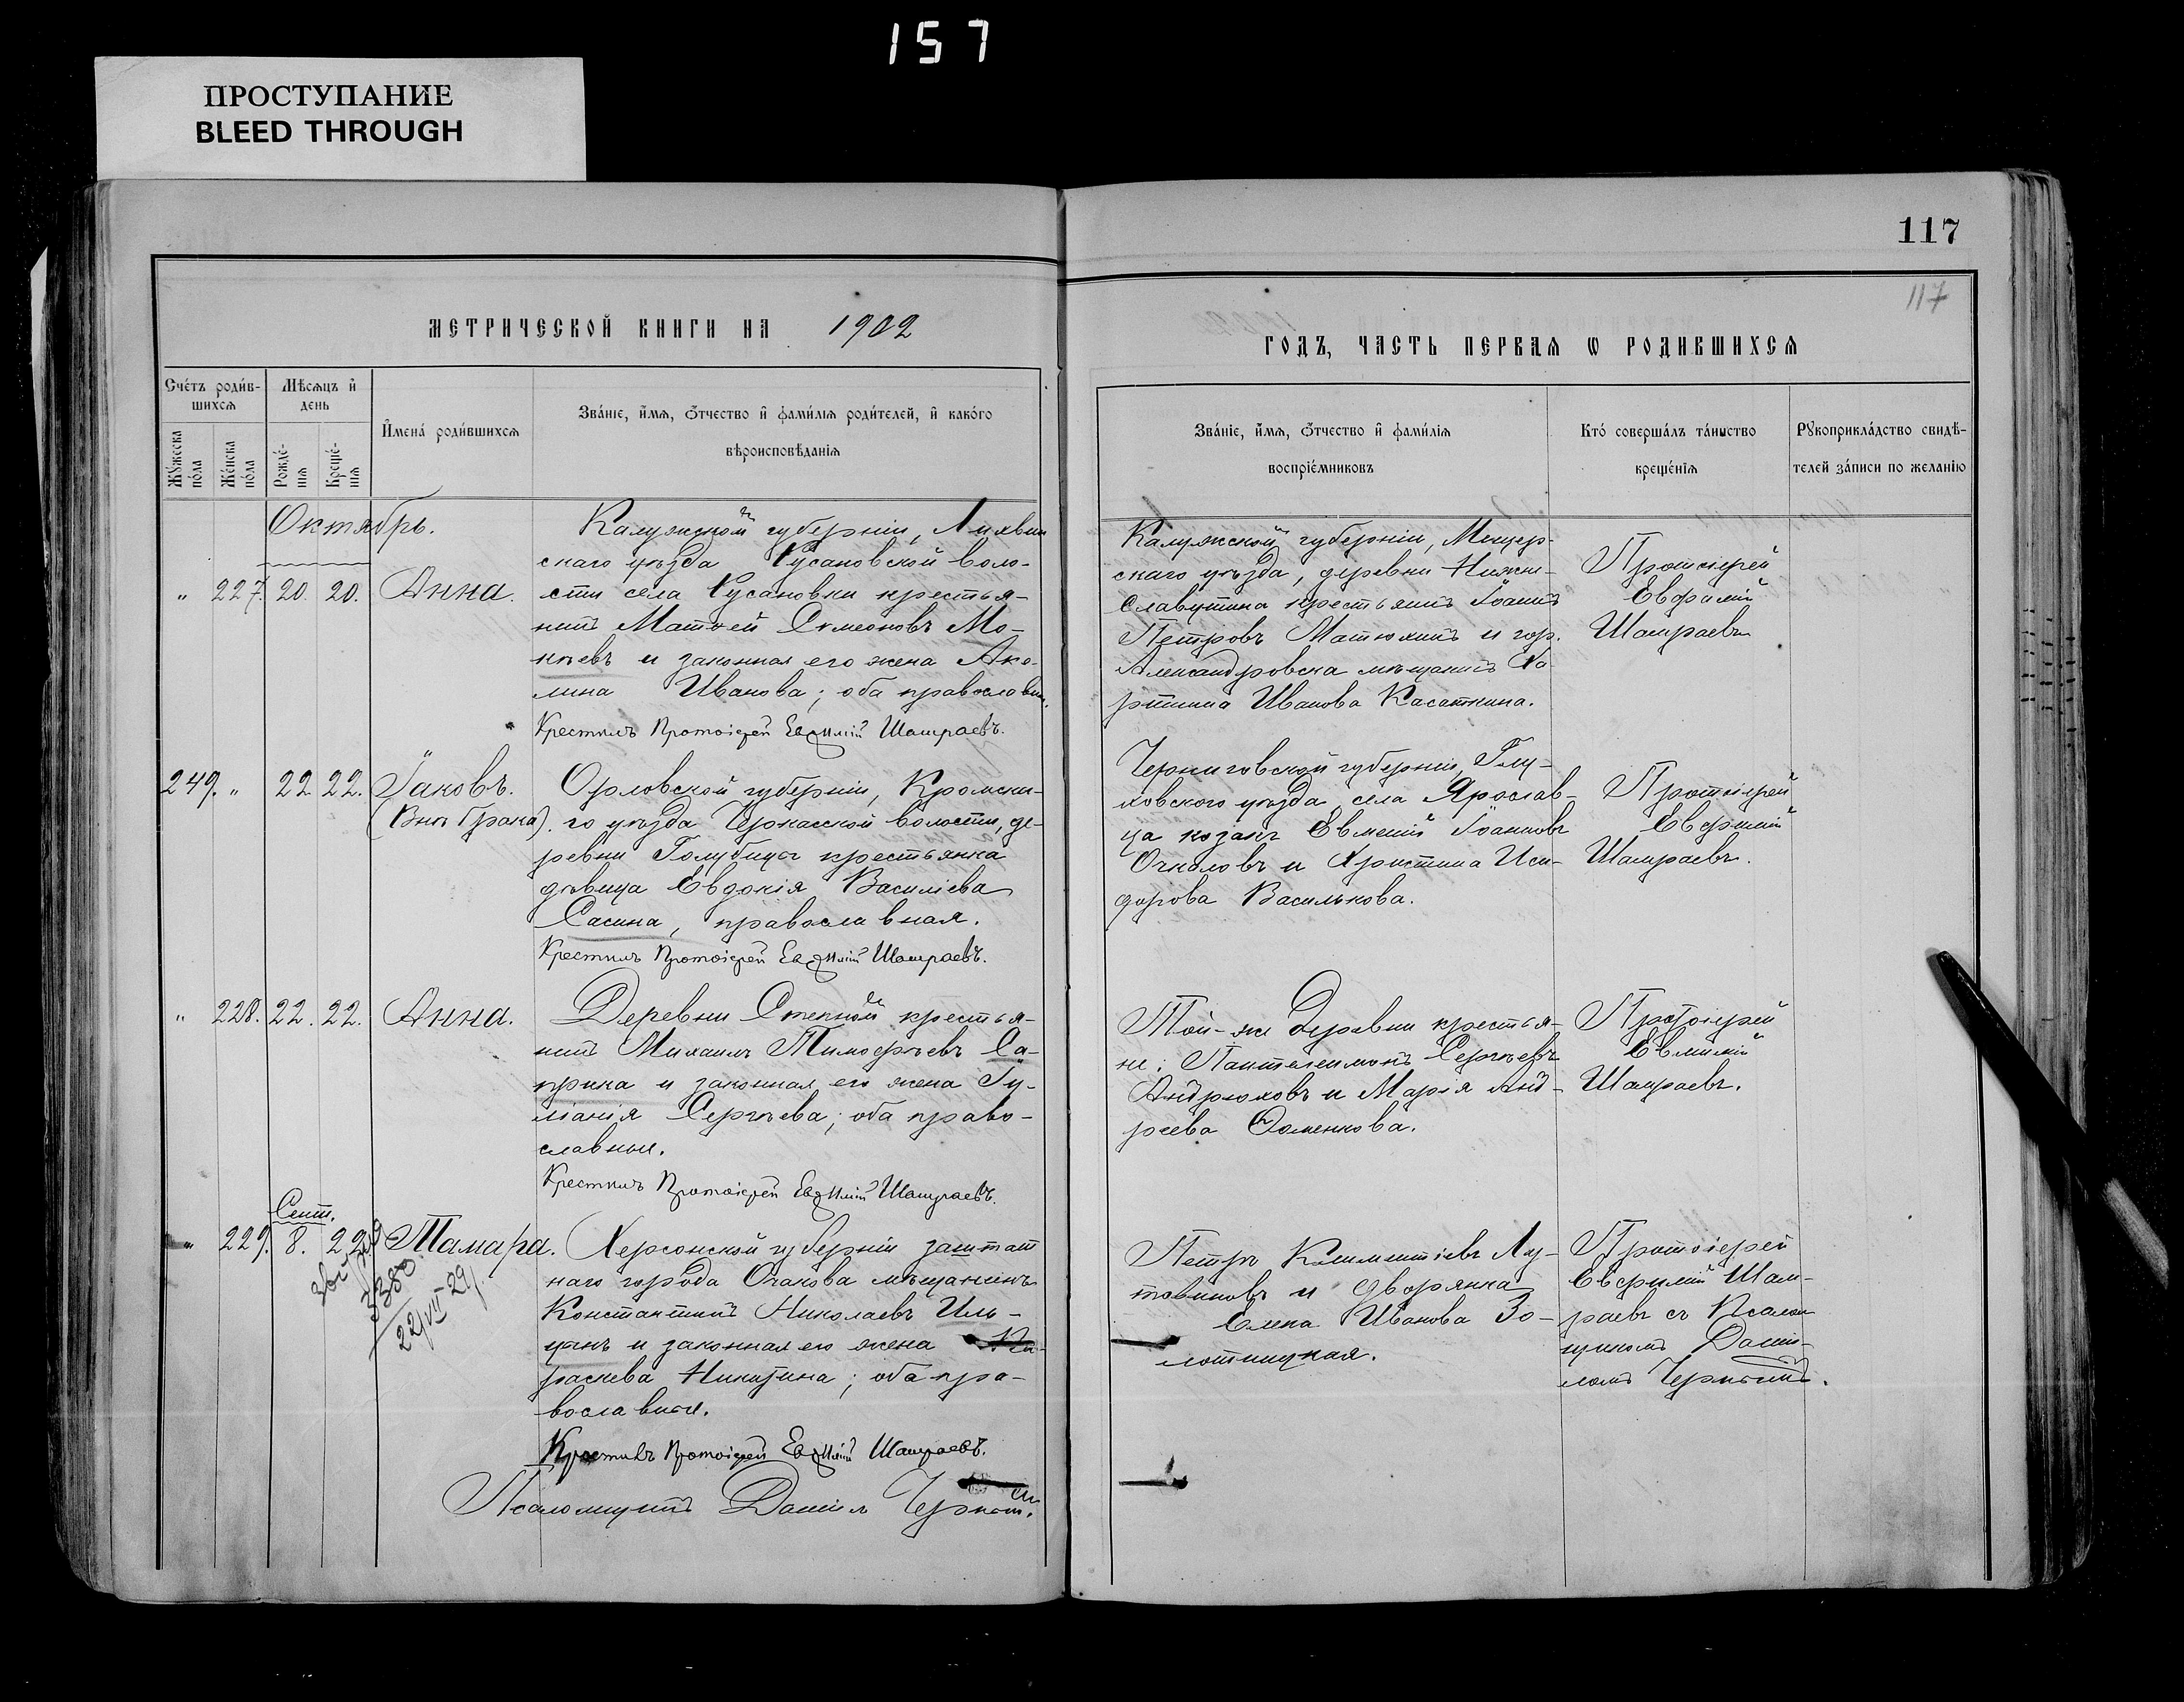 157
ПРОСТУПАНИЕ
BLEED THROUGH
117
117
МЕТРИЧЕСКОЙ КНИГИ НА 1902
ГОДЪ, ЧАСТЬ ПЕРВАЯ Ѡ РОДИВШИХСЯ
Сче́тъ роди́в-
шихсѧ
Мѣсѧцъ и҆
день
Мꙋ́жеска по́ла
Же́нска по́ла
Рожде́-нїѧ
Креще́-нїѧ
И҆мена̀ роди́вшихсѧ
Зва́нїе, и҆́мѧ, ѻ҆́тчество и҆ фами́лїѧ роди́телей, и҆ како́го
вѣроисповѣ́данїѧ
Зва́нїе, и҆́мѧ, ѻ҆́тчество и҆ фами́лїѧ
воспрїе́мниковъ
Кто̀ соверша́лъ та́инство
креще́нїѧ
Рꙋкоприкла́дство свидѣ́-
телей за́писи по жела́нїю
Октябрь.
" 227. 20. 20. Анна.
Калужской губерніи, Лихвин
скаго уѣзда Кусановской воло-
сти села Кусановки крестья-
нинъ Матѳей Симеоновъ Мо-
кѣевъ и законная его жена Аку-
лина Иванова; оба православн.
Крестилъ Протоіерей Евѳимій Шамраевъ.
Калужской губерніи, Мещер-
скаго уѣзда, деревни Нижне-
Славутина крестьянинъ Іоаннъ
Петровъ Матюхинъ и гор.
Александровска мѣщанинъ Ха-
ритина Иванова Касаткина.
Протоіерей
Евфимій
Шамраевъ
249. " 22 22. Іаковъ.
(Внѣ брака).
Орловской губерніи, Кромска-
го уѣзда Черкасской волости, де-
ревни Голубица крестьянка
дѣвица Евдокія Василіева
Сасина, православная.
Крестилъ Протоіерей Евѳимій Шамраевъ.
Черниговской губерніи, Глу-
ховского уѣзда села Ярослав-
ца козакъ Евмений Іоанновъ
Очколовъ и Христина Иси-
дорова Василькова.
Протоіерей
Евфимій
Шамраевъ.
" 228. 22. 22. Анна.
Деревни Степной крестья-
нинъ Михаилъ Тимоѳеевъ Са-
прика и законная его жена Іу-
ліанія Сергѣева; оба право-
славные.
Крестилъ Протоіерей Евѳимій Шамраевъ.
Той-же деревни крестья-
не: Пантелеимонъ Сергѣевъ
Андрюховъ и Марія Анд-
реева Фоменкова.
Протоіерей
Евѳимій
Шамраевъ.
Сент.
" 229. 8. 22 Тамара.
3380
22/VII-29г.
Херсонской губерніи заштат
наго города Очакова мѣщанинъ
Константинъ Николаевъ Иль-
цинъ и законная его жена Па-
раскева Никитина; оба пра-
вославные.
Крестилъ Протоіерей Евѳимій Шамраевъ.
Псаломщикъ Даніилъ Чернат.
Петръ Климентіевъ Лу-
товиновъ и дворянка
Елена Иванова Зо-
лотницкая.
Протоіерей
Евфимій Шам-
раевъ съ Псалом
щикомъ Дани-
ломъ